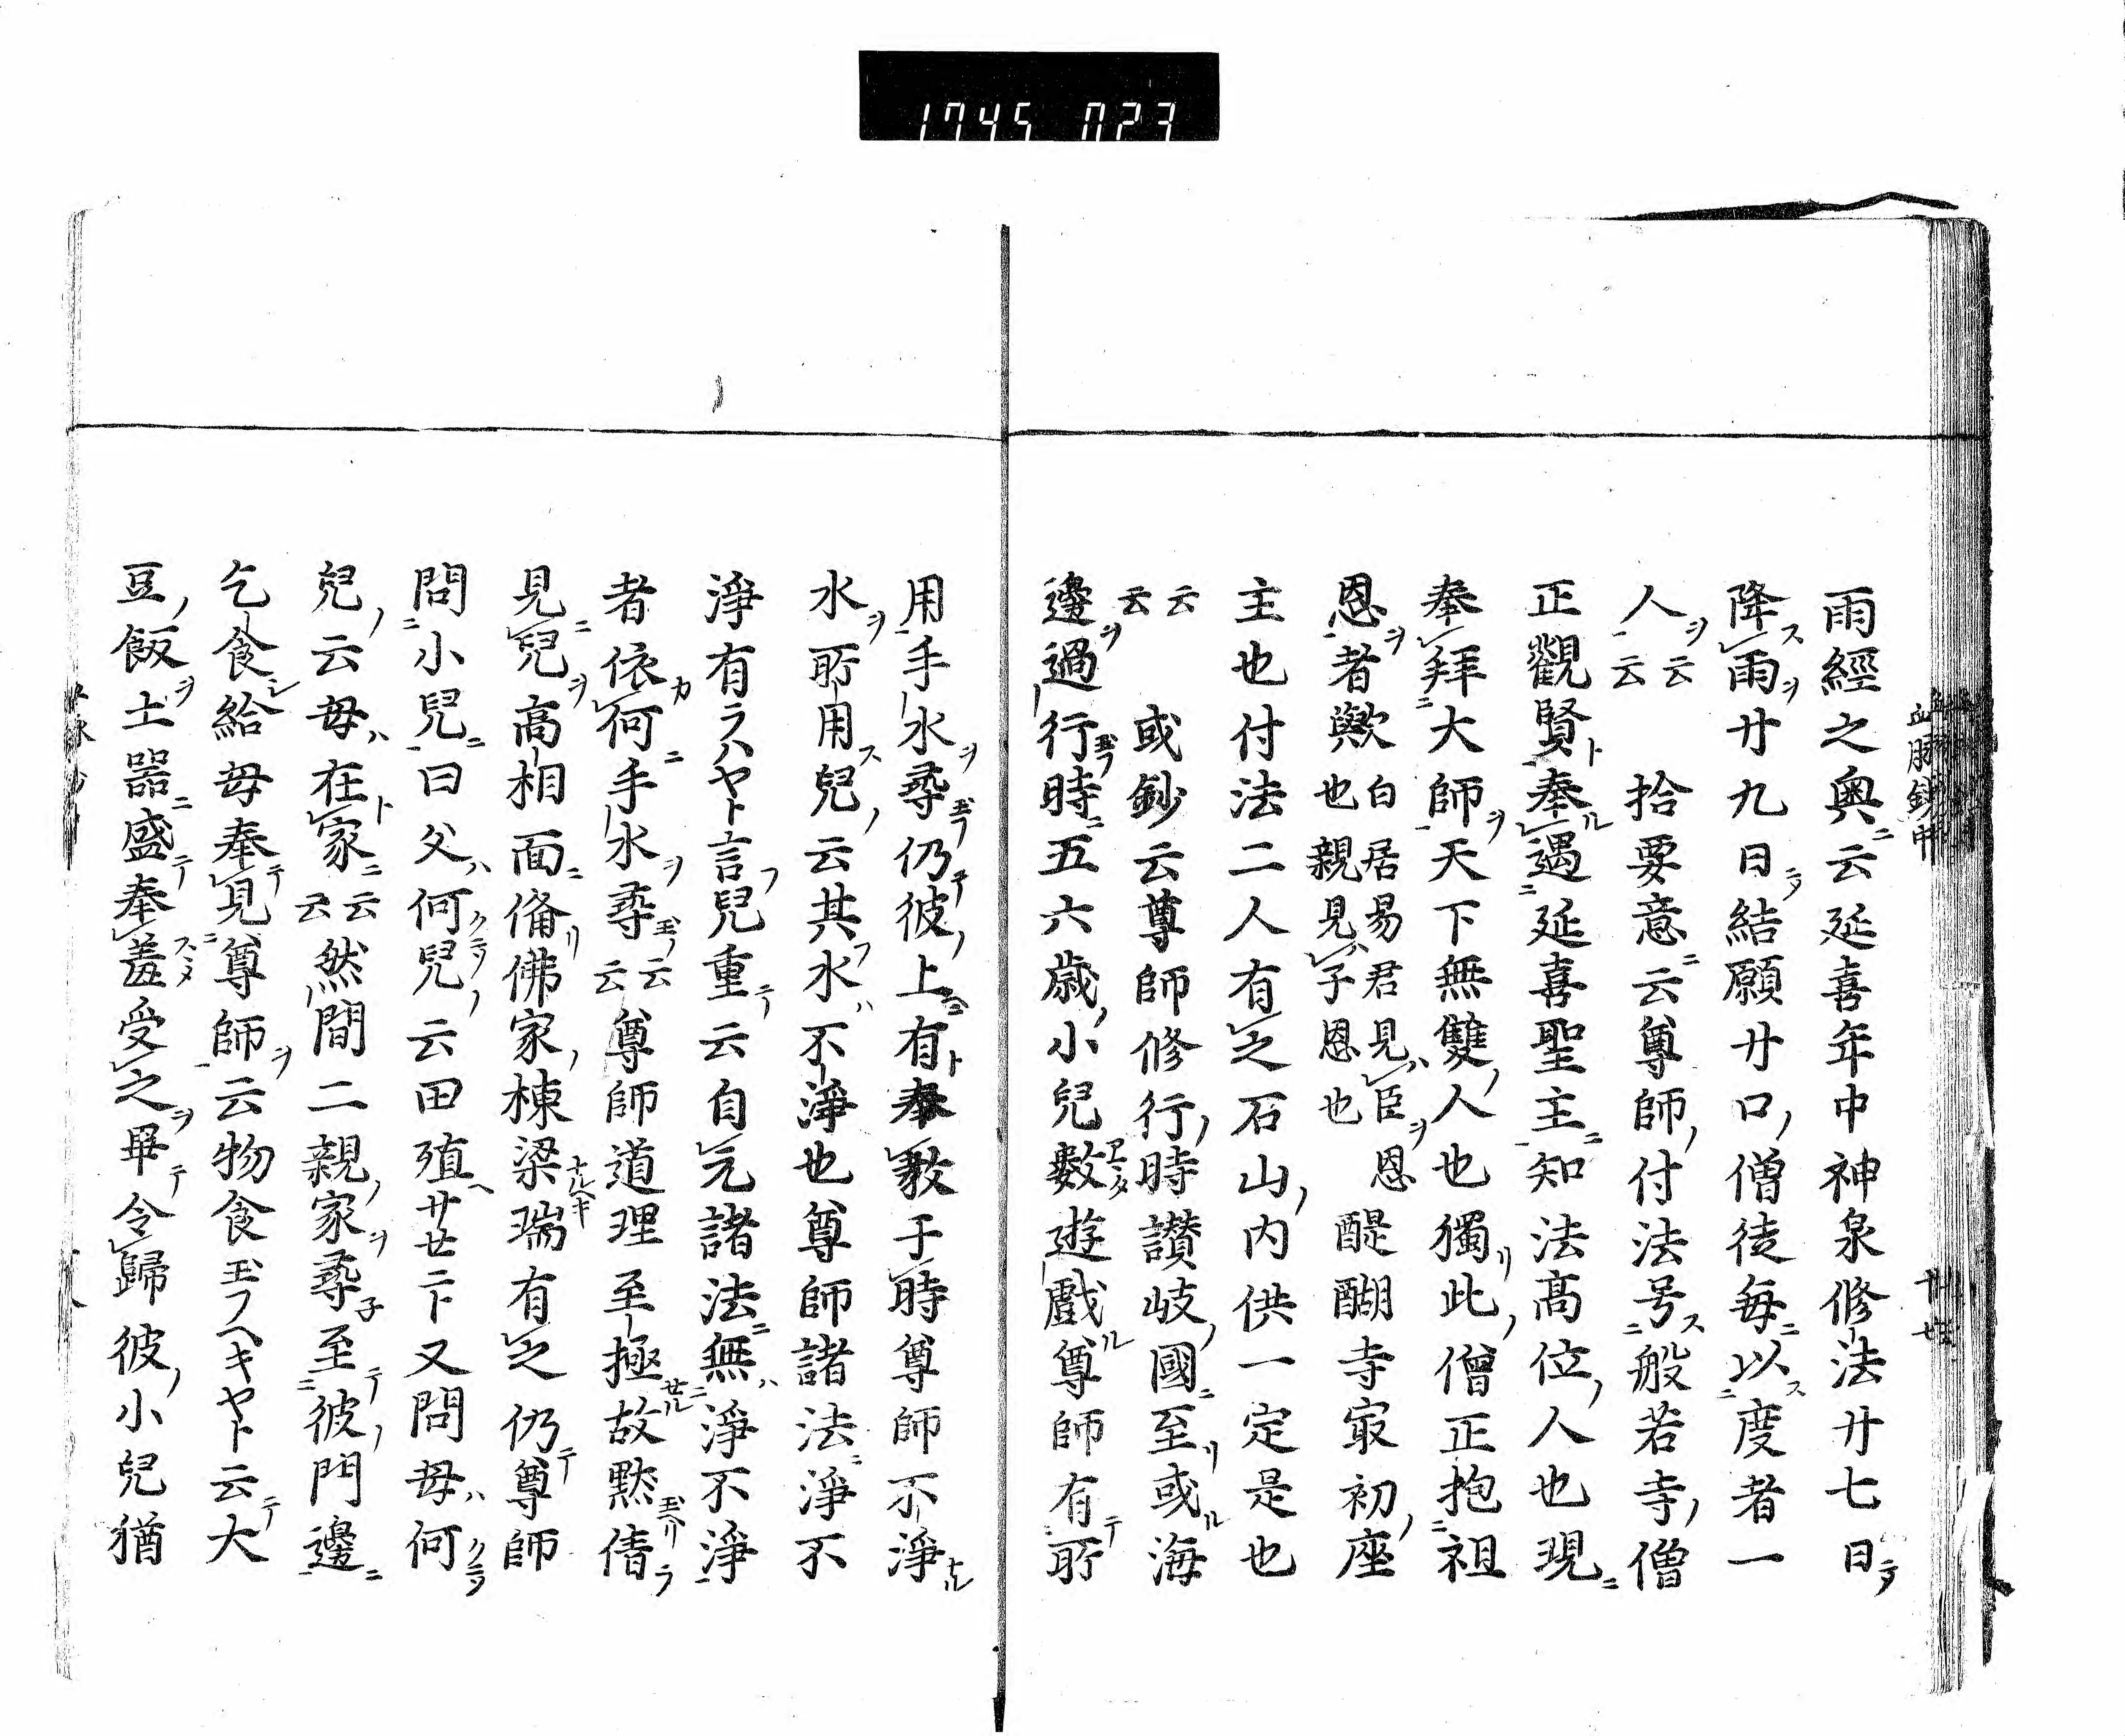 1745 023
雨經之奧云延喜年中神泉修法廿七日
降雨廿九日結願廿口僧徒每以度者一
人云云　拾要意云尊師付法号般若寺僧
正觀賢奉遇延喜聖主知法高位人也現
奉拜大師天下無雙人也獨此僧正抱祖
恩者歟白居易君見臣恩也親見子恩也醍醐寺㝡初座
主也付法二人有之石山内供一定是也
云云　或鈔云尊師修行時讃岐國至或海
邊過行時五六歳小兒數遊戲尊師有所
用手水尋仍彼上有奉教于時尊師不淨
水所用兒云其水不淨也尊師諸法淨不
淨有ラハヤト言兒重云自元諸法無淨不淨
者依何手水尋云云尊師道理至極故默倩
見兒高相面備佛家棟梁瑞有之仍尊師
問小兒曰父何兒云田殖廿廿ニト又問母何
兒云母在家云云然間二親家尋至彼門邊
乞食給母奉見尊師云物食玉フヘキヤト云大
豆飯土器盛奉羞受之畢令歸彼小兒猶